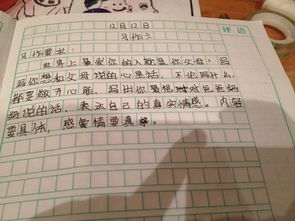 评语
12月12日
习作六
习作要求:
世界上最爱你的人就是你父母,写
写你想和父母说的心里话,不论写什么,
都要敞开心扉,写出你最想对爸爸妈
妈说的话,表达自己的真实情感。内容
要具体,感情要真。